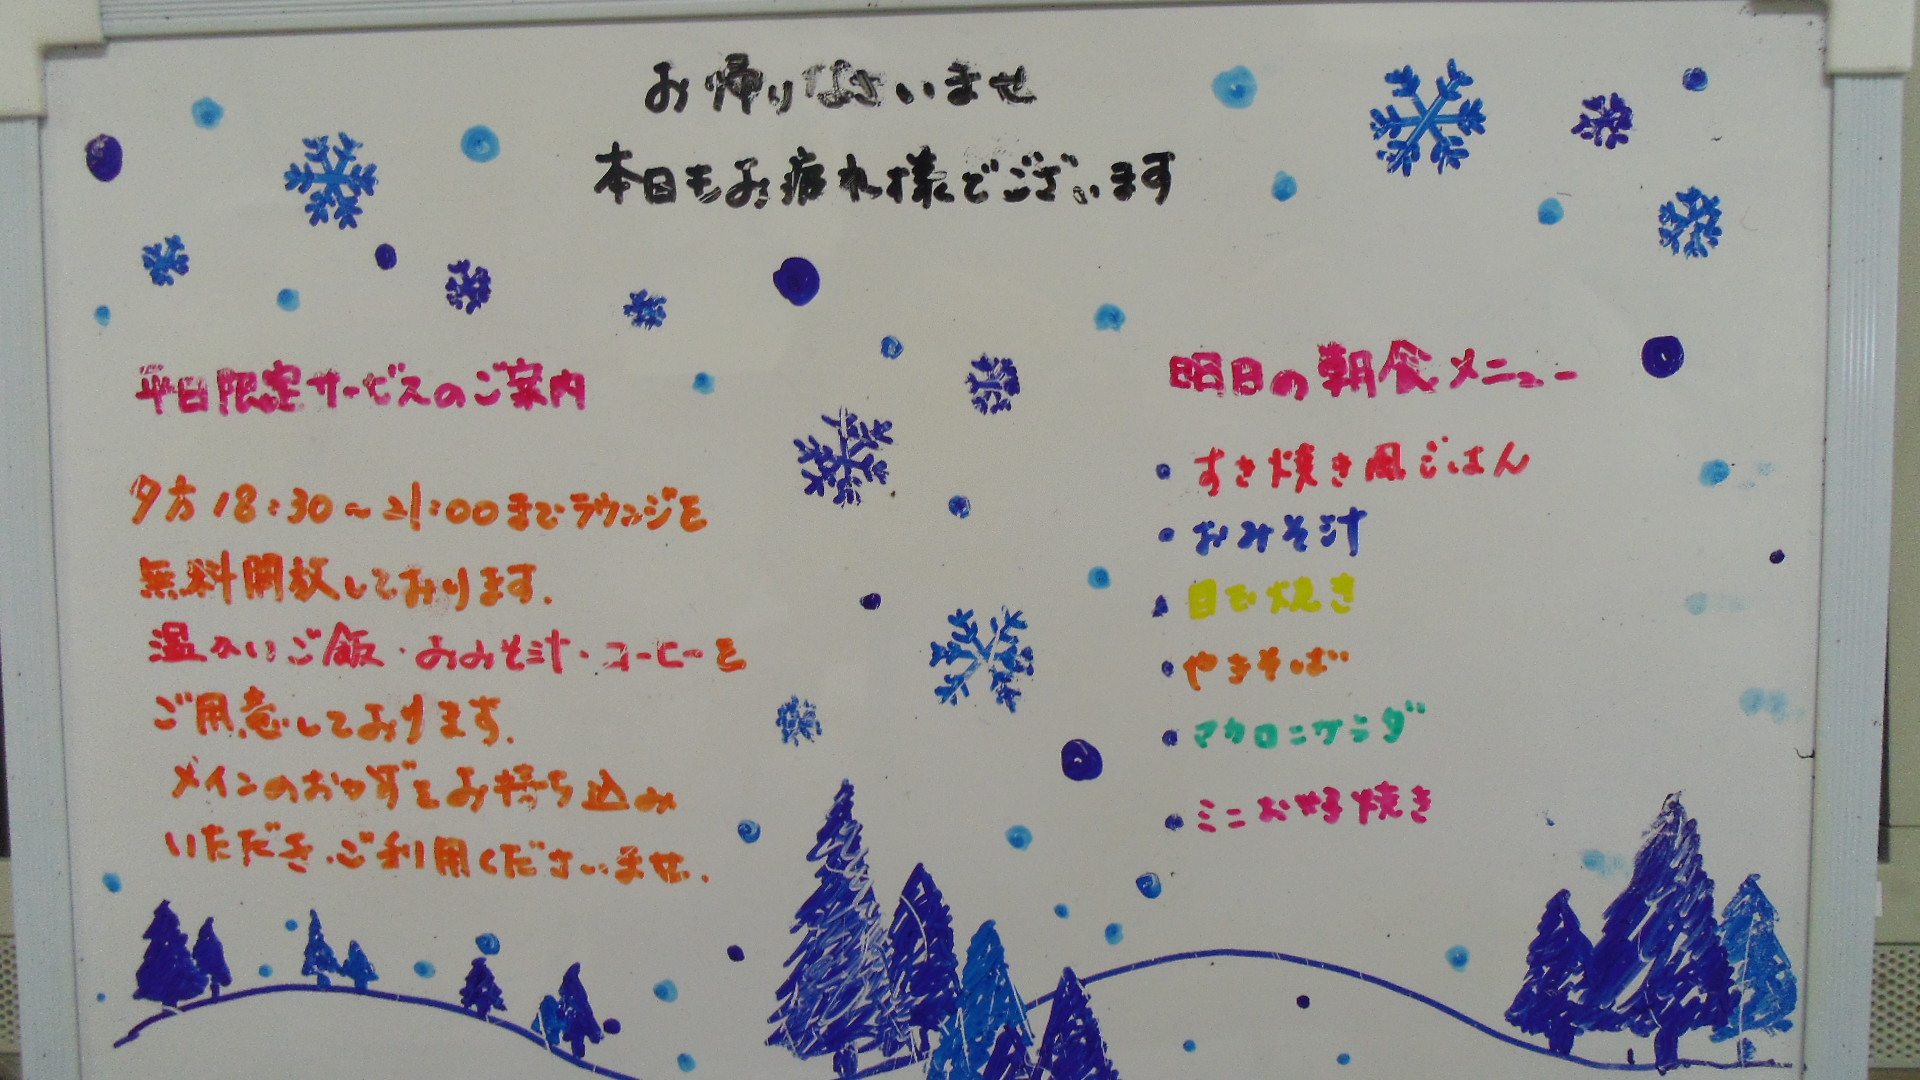 お帰りなさいませ
本日もお疲れ様でございます
平日限定サービスのご案内
夕方18:30～21:00までラウンジを
無料開放しております.
温かいご飯・おみそ汁・コーヒーを
ご用意しております.
メインのおかずをお持ち込み
いただき、ご利用くださいませ.
明日の朝食メニュー
・すき焼き風ごはん
・おみそ汁
・目玉焼き
・やきそば
・マカロニサラダ
・ミニお好焼き